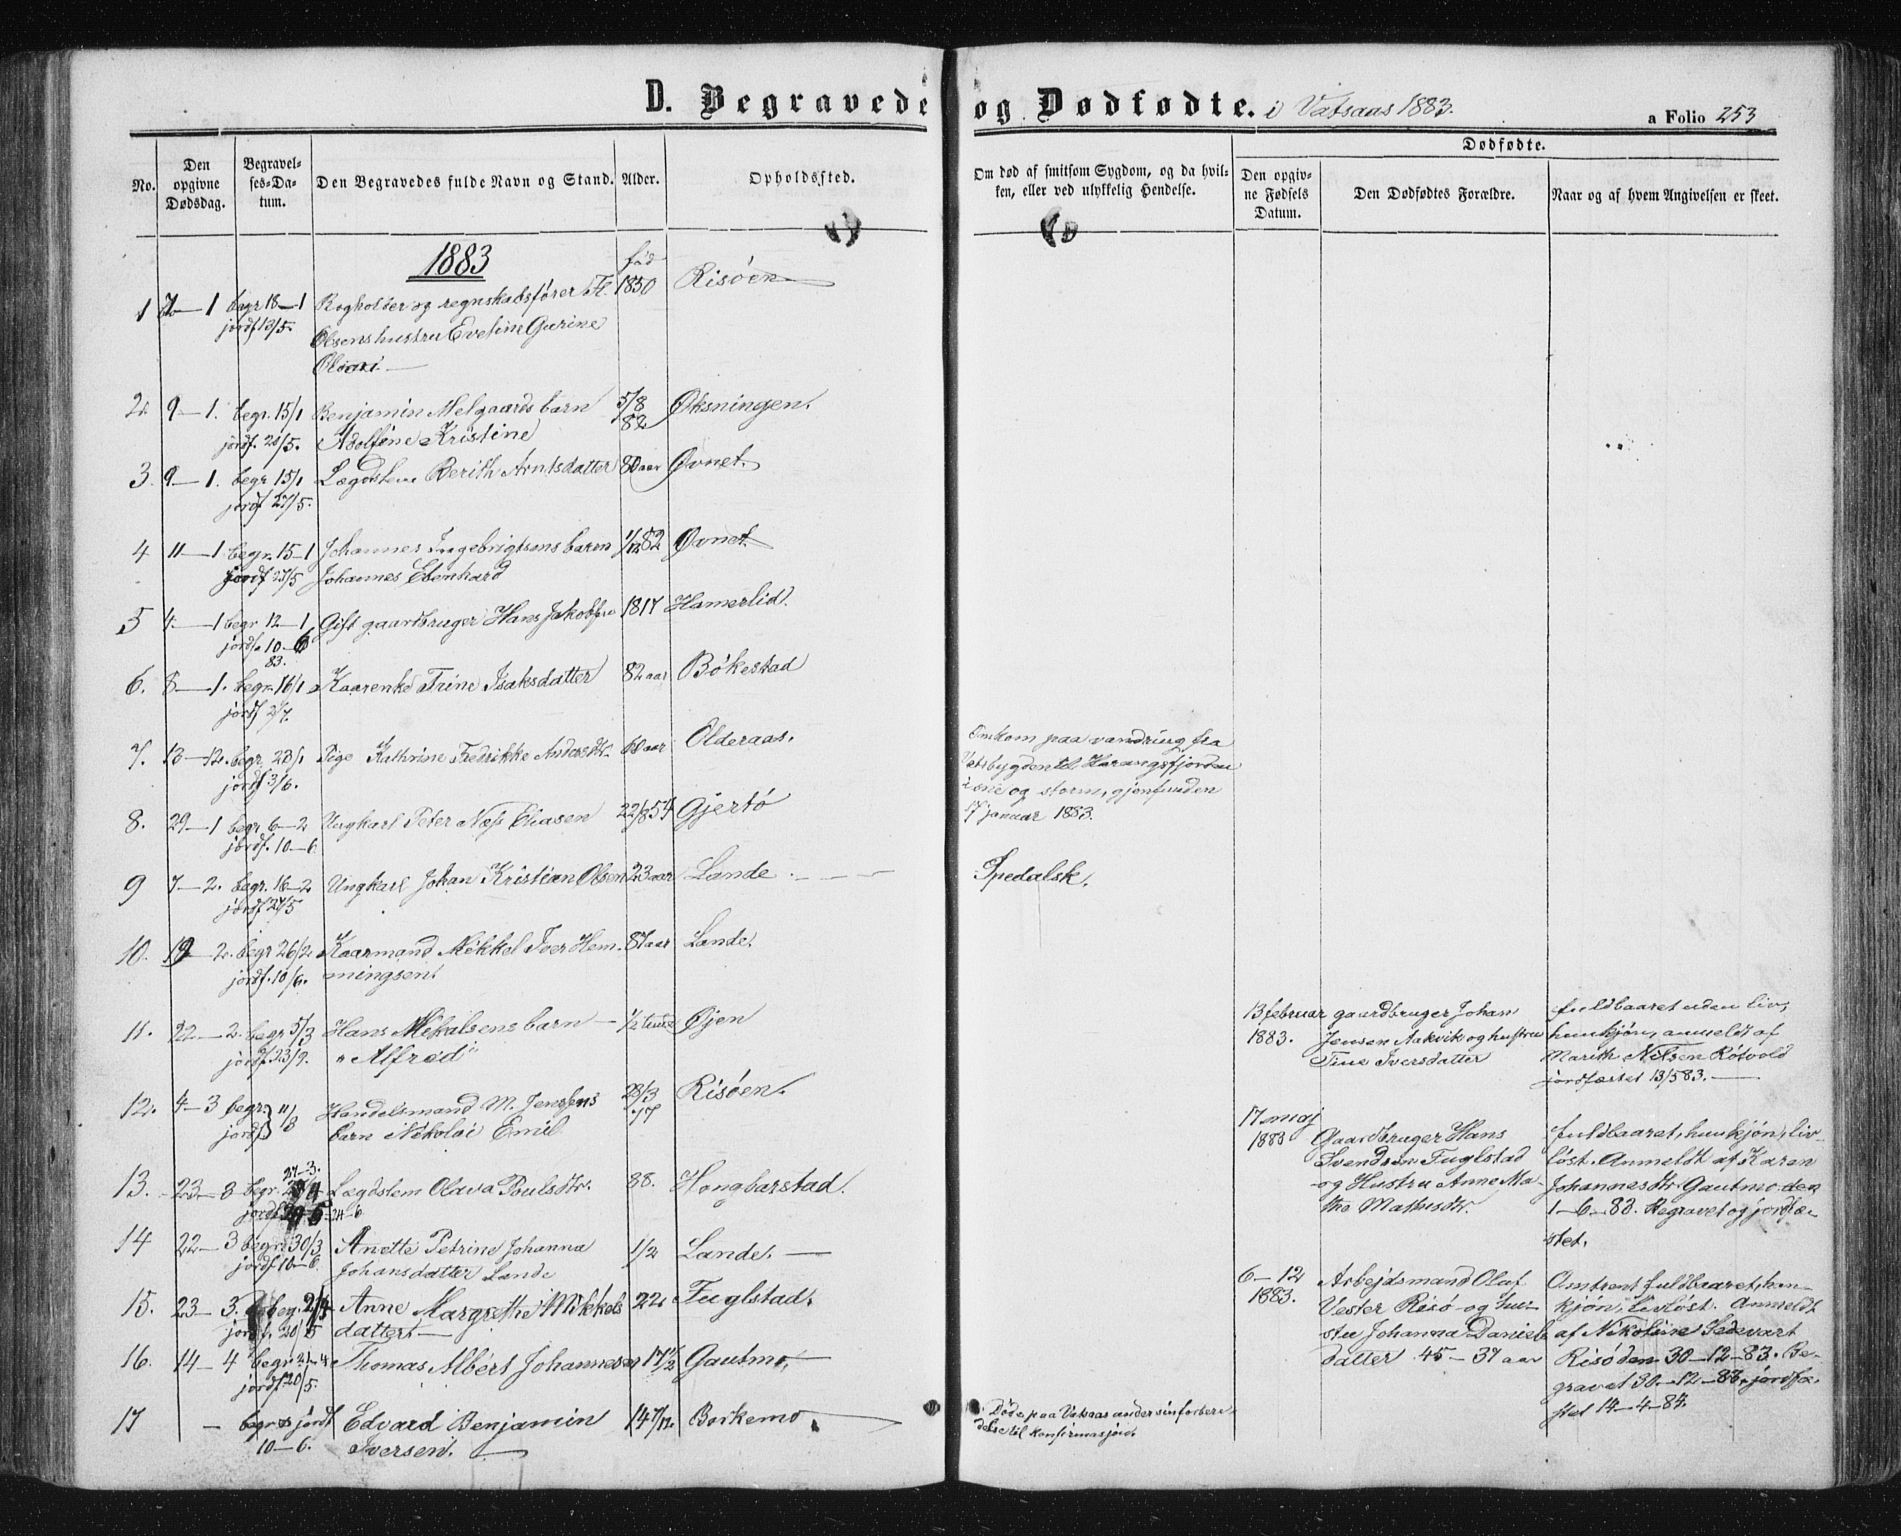 D. Begravede og Dødfødte. i Vatsaas 1883.
a Folio 253
No.
Den opgivne Dødsdag.
Begravelses-Datum.
Den Begravedes fulde Navn og Stand.
Alder.
Opholdssted.
Om død af smitsom Sygdom, og da hvilken, eller ved ulykkelig Hendelse.
Dødfødte.
Den opgivne Fødsels Datum.
Den Dødfødtes Forældre.
Naar og af hvem Angivelsen er skeet.
1883
fød
1 7–1 begr 18–1 og regnskabsfører Fl. 1850 Risøen
jordf 13/5. Olsens hustru Eveline Gurine
2. 9–1. begr. 15/1 Benjamin Melgaards barn 5/8 82 Øksningen.
jordf. 20/5. Adolfine Kristine
3. 9–1. begr 15/1 Lægdslem Berith Arntsdatter 80 aar Øvnet.
jordf 27/5.
4 11–1 begr. 15–1 Johannes Ingebrigtsens barn 1/12 82 Øvnet.
jordf 27/5 Johannes Edenhard
5 4–1 begr 12–1 Gift gaardbruger Hans Jakobsen 1817 Hamerlid.
jordf. 10–6
83.
6. 8–1. begr. 16/1 Kaarenke Trine Isaksdatter 82 aar Bökestad
jordf 2/7.
7. 13–12. begr. 23/1 Pige Kathrine Fredrikke Andersdtr. 60 aar Olderaas.
jordf 3/6.
Omkom paa vandring fra
Vatsbygden til Harangsfjorden
i sne og storm, gjenfunden
17 januar 1883.
8. 29–1 begr. 6–2 Ungkarl Peter Næss Eliasen 22/8 54 Gjertö
jordf. 10–6
9 7–2. begr. 16–2 Ungkarl Johan Kristian Olsen 23 aar Lande. Spedalsk.
jordf 27/5
10. 19–2. begr 26/2 Kaarmand Mikkel Iver Hem- 87 aar Lande.
jordf. 10/6. mingsen.
11. 22–2. begr 5/3 Hans Mikalsens barn 1/2 time Øjen
jordf 23/9. "Alfred"
13 februar 1883. gaardbruger Johan
Jensen Aakvik og hustru
Tine Iversdatter
fuldbaaret uden liv,
hunkjøn, anmeldt af
Marith Nilsen Rötvold
jordfæstet 13/5 83.
12. 4–3 begr. jordf 11/3 Handelsmand M. Jenssens 23/3 77 Risöen.
barn Nikolai Emil
17 maj 1883 Gaardbruger Hans
Svendsen Fuglstad
og Hustru Anne Ma-
tha Mathisdtr.
fuldbaaret, hunkjön, liv-
löst. Anmeldt af Karen
Johannesdtr. Gautmo den
1–6–83. Begravet og jordfæ-
stet.
27–3.
13. 23–3 begr. Lægdslem Olava Poulsdtr. 88. Hongbarstad.
jordf 24–6
14 22–3 begr. 30/3 Anette Petrine Johanna 1/2 Lande.
jordf 10–6. Johansdatter Lande
15. 23–3. begr. 2/4 Anne Margrethe Mikkels 22. Fuglstad.
jordf. 20/5 datter.
6–12 1883. Arbejdsmand Oluf
Vester Risö og hu-
stru Johanna Daniels
datter 45–37 aar
Omtrent fuldbaaret, han-
kjøn, livløst. Anmeldt
af Nikoline Sedevart
Risö den 30–12–83. Be-
gravet 30–12–83, jordfæ-
stet 14–4–84.
16. 14–4 begr. 21–4 Thomas Albert Johannesen 17 1/2 Gautmo.
jordf 20/5.
17 – begr. & jordf Edvard Benjamin 14 7/12 Borkemo
10–6. Iversen.
Döde paa Vatsaas under sin forbere-
delse til konfirmasjon.